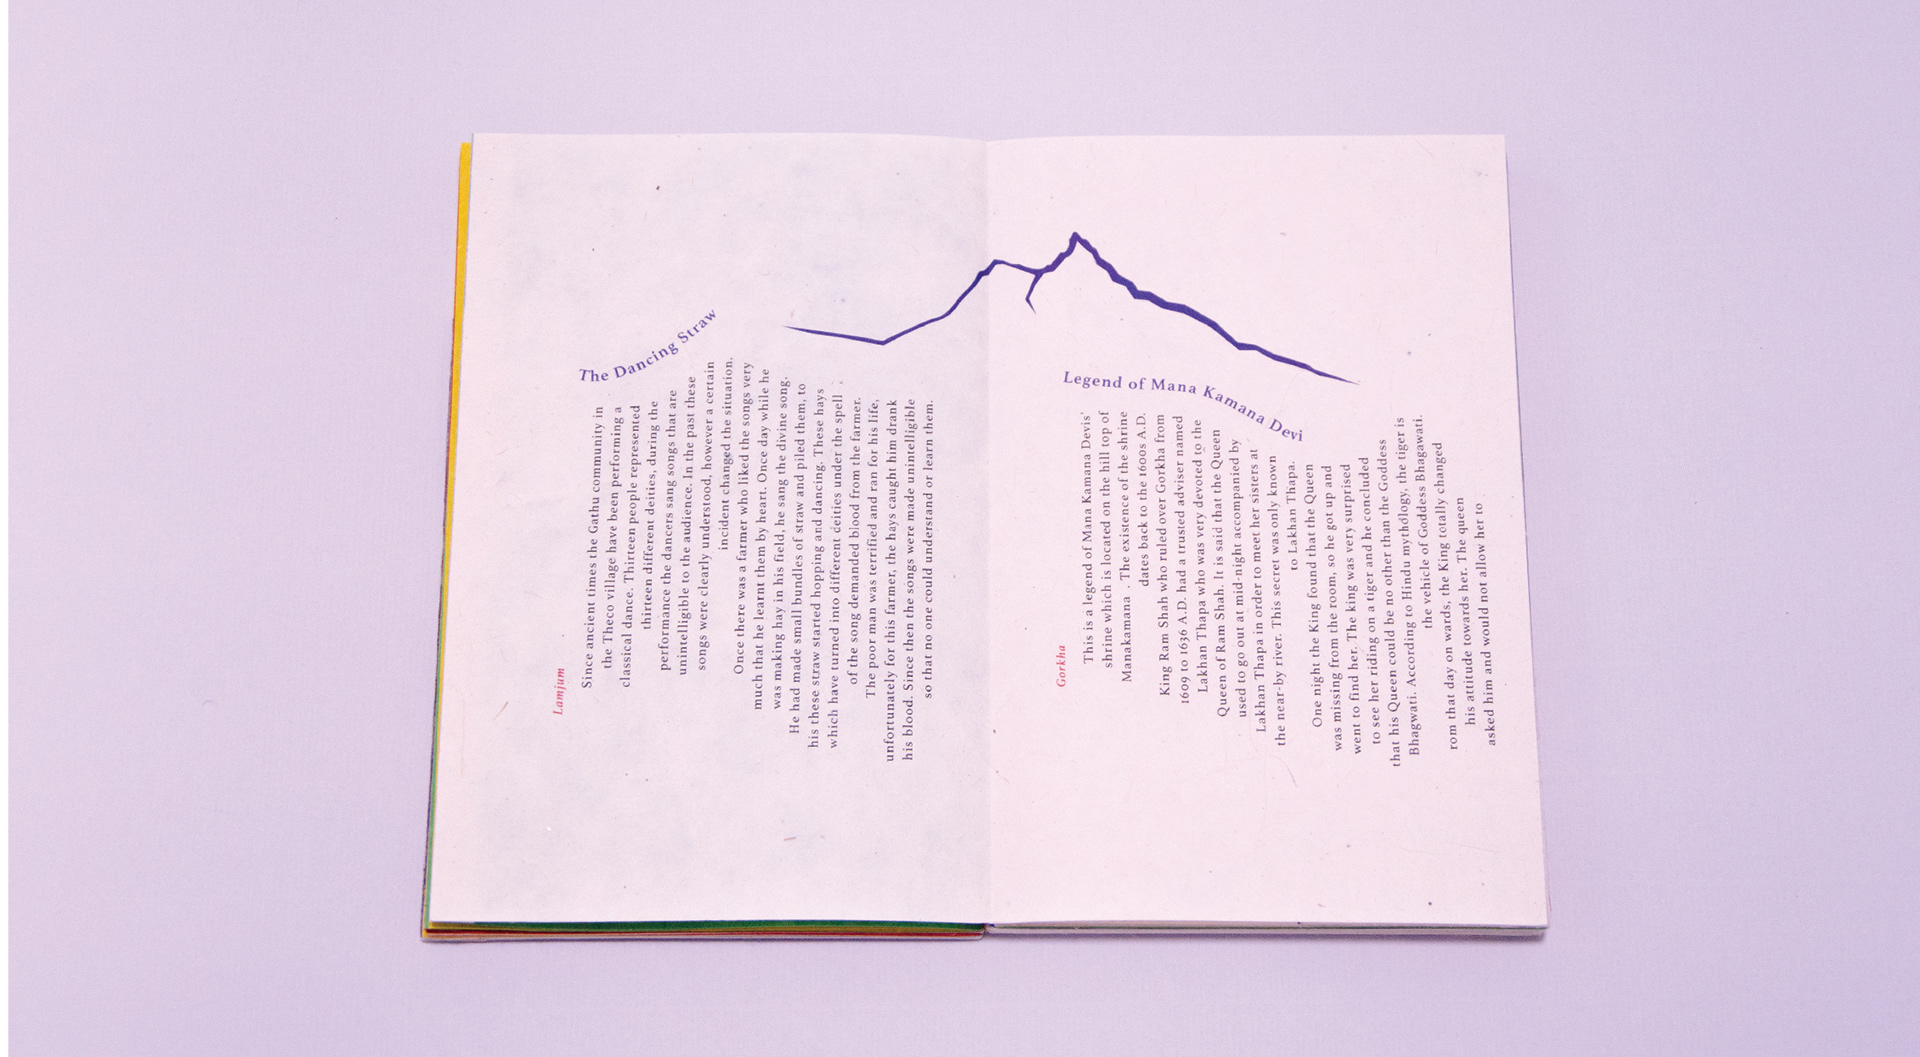 The Dancing Straw
Lamjum
Since ancient times the Gathu community in
the Theco village have been performing a
classical dance. Thirteen people represented
thirteen different deities, during the
performance the dancers sang songs that are
unintelligible to the audience. In the past these
songs were clearly understood, however a certain
incident changed the situation.
Once there was a farmer who liked the songs very
much that he learnt them by heart. Once day while he
was making hay in his field, he sang the divine song.
He had made small bundles of straw and piled them, to
his these straw started hopping and dancing. These hays
which have turned into different deities under the spell
of the song demanded blood from the farmer.
The poor man was terrified and ran for his life,
unfortunately for this farmer, the hays caught him drank
his blood. Since then the songs were made unintelligible
so that no one could understand or learn them.
Legend of Mana Kamana Devi
Gorkha
This is a legend of Mana Kamana Devis'
shrine which is located on the hill top of
Manakamana . The existence of the shrine
dates back to the 1600s A.D.
King Ram Shah who ruled over Gorkha from
1609 to 1636 A.D. had a trusted adviser named
Lakhan Thapa who was very devoted to the
Queen of Ram Shah. It is said that the Queen
used to go out at mid-night accompanied by
Lakhan Thapa in order to meet her sisters at
the near-by river. This secret was only known
to Lakhan Thapa.
One night the King found that the Queen
was missing from the room, so he got up and
went to find her. The king was very surprised
to see her riding on a tiger and he concluded
that his Queen could be no other than the Goddess
Bhagwati. According to Hindu mythology, the tiger is
the vehicle of Goddess Bhagawati.
rom that day on wards, the King totally changed
his attitude towards her. The queen
asked him and would not allow her to